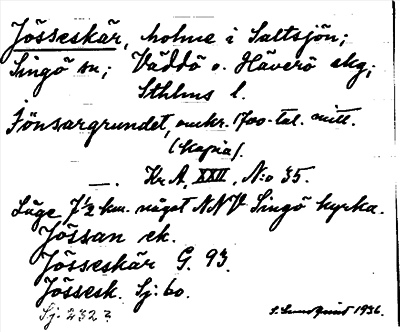 Jösseskär, holme i Saltsjön;
Singö sn; Väddö o. Häverö skg;
Sthlms l.
Jönsargrundet, omkr. 1700-tal. mitt.
(kopia).
—. Kr A, XXII, N:o 35.
Läge 7½ km. något NNV Singö kyrka.
Jössan ek.
Jösseskär G. 93.
Jössesk. Sj: 60.
Sj. 232?
S. Lundquist 1936.